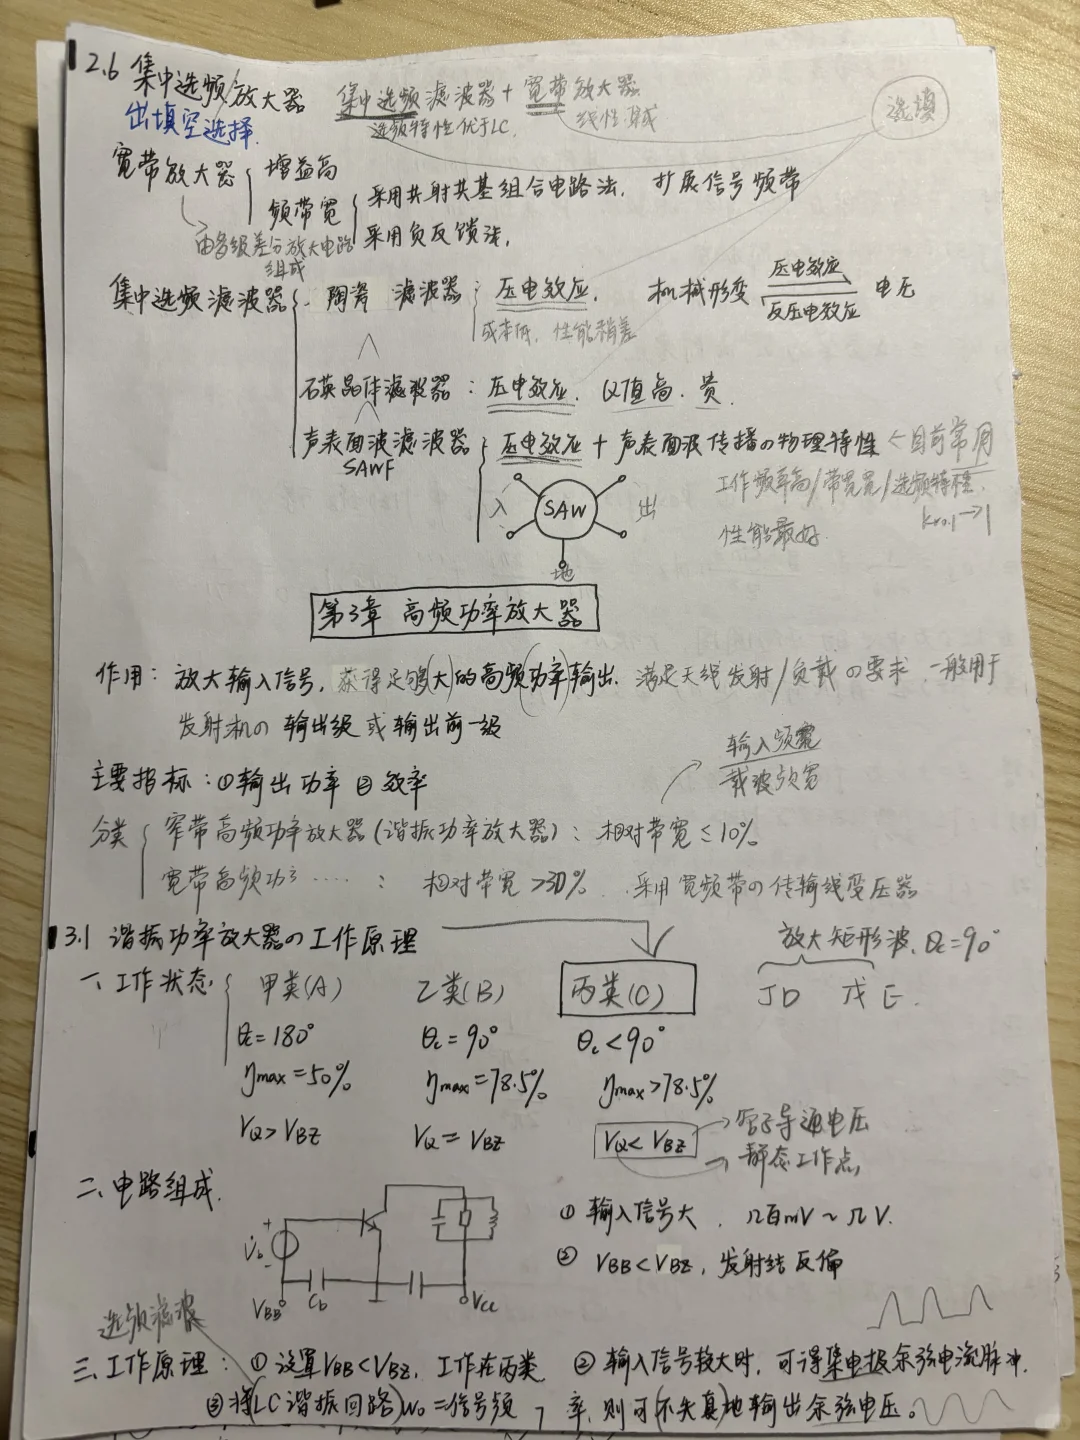 2.6 集中选频放大器 集中选频滤波器+宽带放大器
出填空选择. 选频特性优于LC. 线性集成 选填
宽带放大器 { 增益高
频带宽 { 采用共射共基组合电路法, 扩展信号频带
由多级差分放大电路组成 采用负反馈法,
集中选频滤波器 { 陶瓷 滤波器 : 压电效应, 机械形变 压电效应 反压电效应 电压
成本低, 性能稍差
石英晶体滤波器 : 压电效应, Q值高. 贵.
声表面波滤波器 { 压电效应 + 声表面波传播の物理特性 ← 目前常用
SAWF
入 SAW 出 工作频率高/带宽宽/选频特性
kr0.1→1
性能最好.
地
第3章 高频功率放大器
作用: 放大输入信号, 获得足够(大)的高频(功率)输出, 满足天线发射/负载の要求, 一般用于
发射机の 输出级 或 输出前一级
主要指标: ①输出功率 ②效率
输入频宽
载波频宽
分类 { 窄带高频功率放大器(谐振功率放大器): 相对带宽≤10%
宽带高频功 ····· : 相对带宽>30%, 采用宽频带の传输线变压器
3.1 谐振功率放大器の工作原理 放大矩形波, θc=90°
一、工作状态 { 甲类(A) 乙类(B) 丙类(C) 丁D 戊E.
θc=180° θc=90° θc<90°
ηmax=50% ηmax=78.5% ηmax>78.5%
VQ>VBZ VQ=VBZ VQ<VBZ → 管子导通电压
→ 静态工作点
二、电路组成.
Vb + - VBB Cb Vcc
① 输入信号大, 几百mV~几V.
② VBB<VBZ, 发射结反偏
选频滤波
三、工作原理: ① 设置VBB<VBZ, 工作在丙类 ② 输入信号较大时, 可得集电极余弦电流脉冲.
③将(LC谐振回路)w₀=信号频率, 则可(不失真)地输出余弦电压。